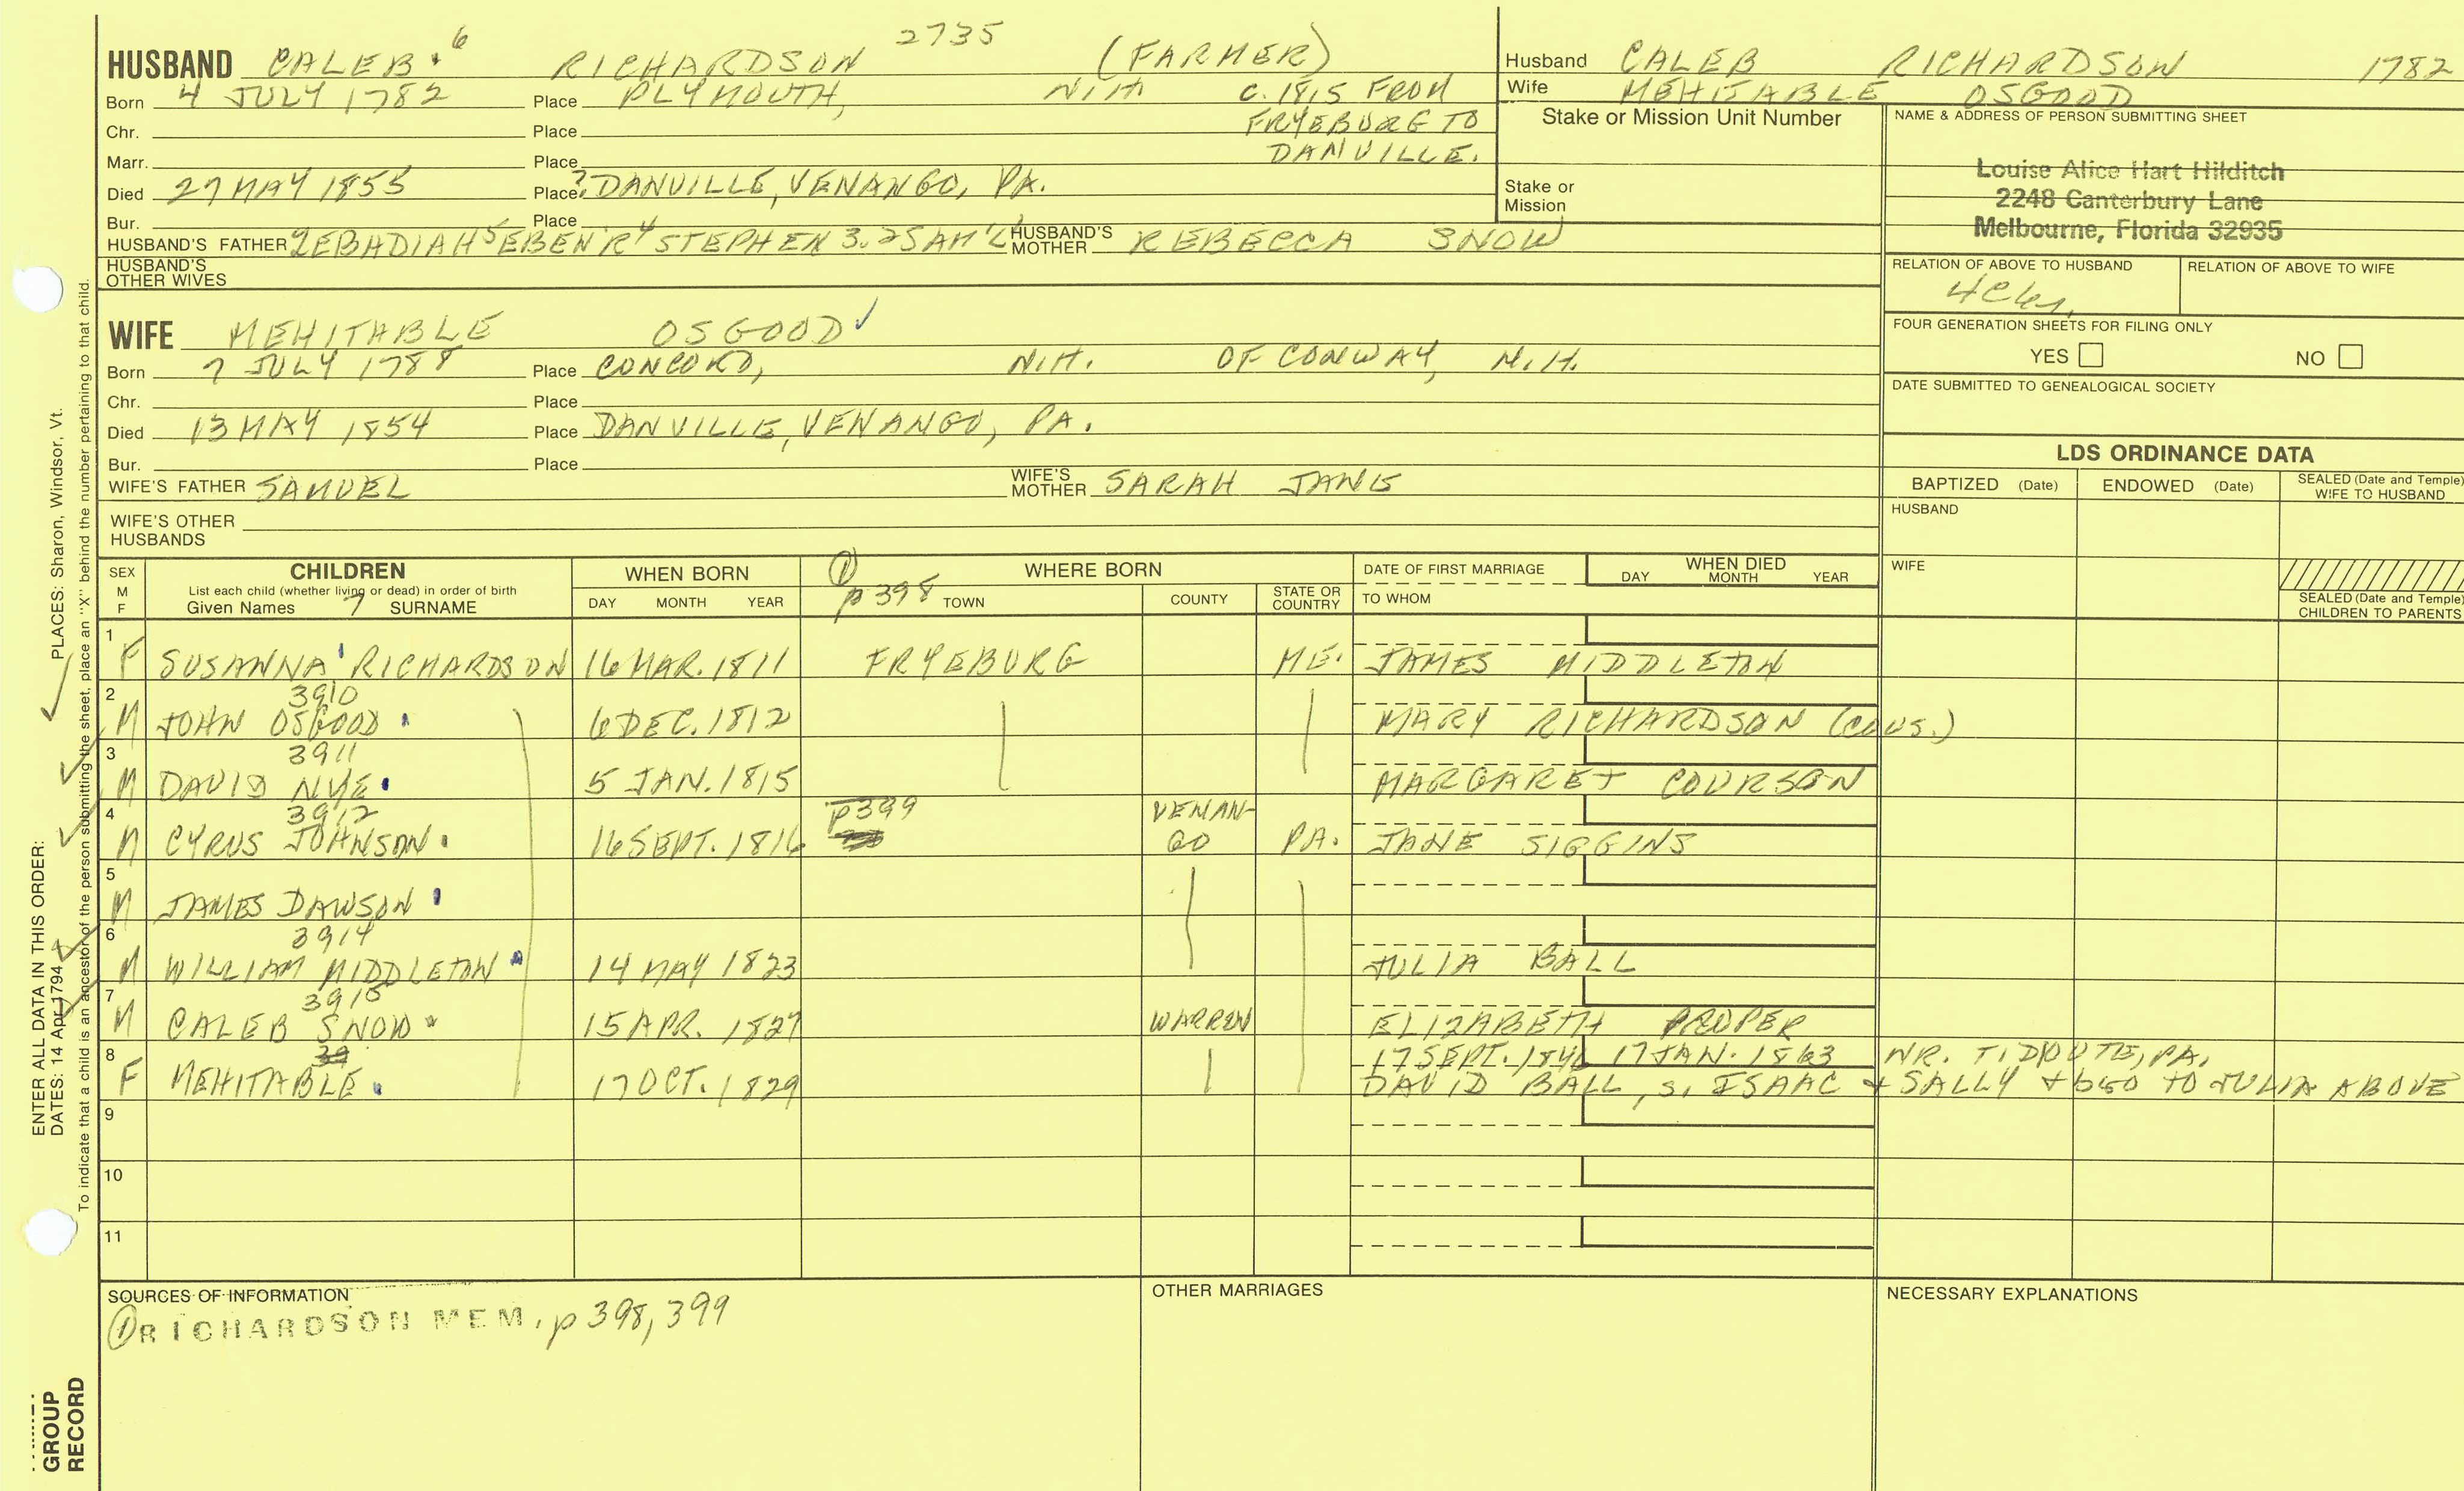 HUSBAND CALEB 6 RICHARDSON 2735 (FARMER)
Born 4 JULY 1782 Place PLYMOUTH, N.H. C. 1815 FROM
Chr. Place FRYEBURG TO
Marr. Place DANVILLE.
Died 27 MAY 1855 Place ? DANVILLE, VENANGO, PA.
Bur. Place
HUSBAND'S FATHER ZEBADIAH 5 EBEN'R 4 STEPHEN 3. 2 SAM'L HUSBAND'S MOTHER REBECCA SNOW
HUSBAND'S OTHER WIVES
WIFE MEHITABLE OSGOOD ✓
Born 7 JULY 1788 Place CONCORD, N.H. OF CONWAY, N.H.
Chr. Place
Died 13 MAY 1854 Place DANVILLE, VENANGO, PA.
Bur. Place
WIFE'S FATHER SAMUEL WIFE'S MOTHER SARAH JANE
WIFE'S OTHER HUSBANDS
Husband CALEB RICHARDSON 1782
Wife MEHITABLE OSGOOD
Stake or Mission Unit Number
Stake or Mission
NAME & ADDRESS OF PERSON SUBMITTING SHEET
Louise Alice Hart Hilditch
2248 Canterbury Lane
Melbourne, Florida 32935
RELATION OF ABOVE TO HUSBAND RELATION OF ABOVE TO WIFE
FOUR GENERATION SHEETS FOR FILING ONLY
YES NO
DATE SUBMITTED TO GENEALOGICAL SOCIETY
LDS ORDINANCE DATA
BAPTIZED (Date) ENDOWED (Date) SEALED (Date and Temple) WIFE TO HUSBAND
HUSBAND
WIFE
SEALED (Date and Temple) CHILDREN TO PARENTS
SEX M F
CHILDREN
List each child (whether living or dead) in order of birth
Given Names 7 SURNAME
WHEN BORN
DAY MONTH YEAR
① p 398
WHERE BORN
TOWN COUNTY STATE OR COUNTRY
DATE OF FIRST MARRIAGE
TO WHOM
WHEN DIED
DAY MONTH YEAR
1 F SUSANNA RICHARDSON 16 MAR. 1811 FRYEBURG ME. JAMES MIDDLETON
2 3910
M JOHN OSGOOD 6 DEC. 1812 MARY RICHARDSON (COUS.)
3 3911
M DAVID NYE 5 JAN. 1815 MARGARET COURSON
4 3912 p399 VENAN-
M CYRUS JOHNSON 16 SEPT. 1816 GO PA. JANE SIGGINS
5 M JAMES DAWSON
6 3914
M WILLIAM MIDDLETON 14 MAY 1823 JULIA BALL
7 3915
M CALEB SNOW 15 APR. 1827 WARREN ELIZABETH PROPER
8 39 17 SEPT. 1846 17 JAN. 1863 NR. TIDIOUTE, PA.
F MEHITABLE 17 OCT. 1829 DAVID BALL, S. ISAAC + SALLY + bro TO JULIA ABOVE
9
10
11
SOURCES OF INFORMATION
① RICHARDSON MEM. p 398, 399
OTHER MARRIAGES
NECESSARY EXPLANATIONS
ENTER ALL DATA IN THIS ORDER:
DATES: 14 Apr 1794 PLACES: Sharon, Windsor, Vt.
To indicate that a child is an ancestor of the person submitting the sheet, place an "X" behind the number pertaining to that child.
GROUP
RECORD